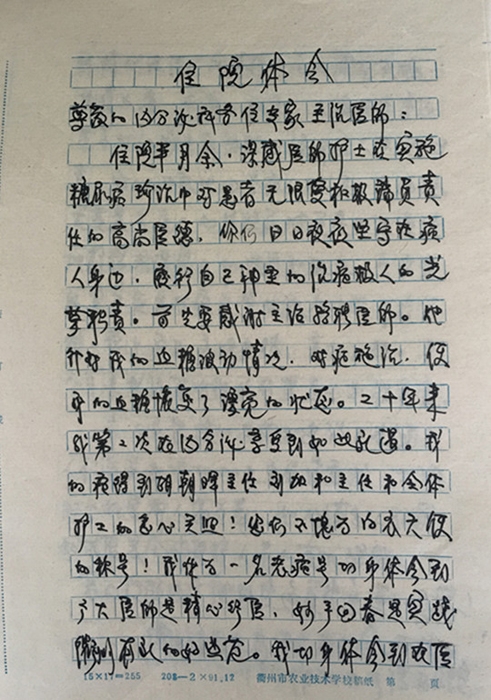 住院体会
尊敬的内分泌科各位专家主治医师：
住院半月余，深感医师护士在实施
糖尿病诊治中对患者无限爱和极端负责
任的高尚医德，你们日日夜夜坚守在病
人身边，履行自己神圣的治病救人的光
荣职责。首先要感谢主治医师。他
我的血糖波动情况，对症施治，使
我的血糖恢复了漂亮的状态。二十年来
我第二次在内分泌享受到如此礼遇。我
的病得到胡朝晖主任刘加和主任和全体
护工的关心关照！你们不愧为白衣天使
的称号！我作为一名老病号切身体会到
了大医师是精心行医，妙手回春是实践
。我切身体会到政医
15×17=255 208—2×91.12 衢州市农业技术学校稿纸 第 页